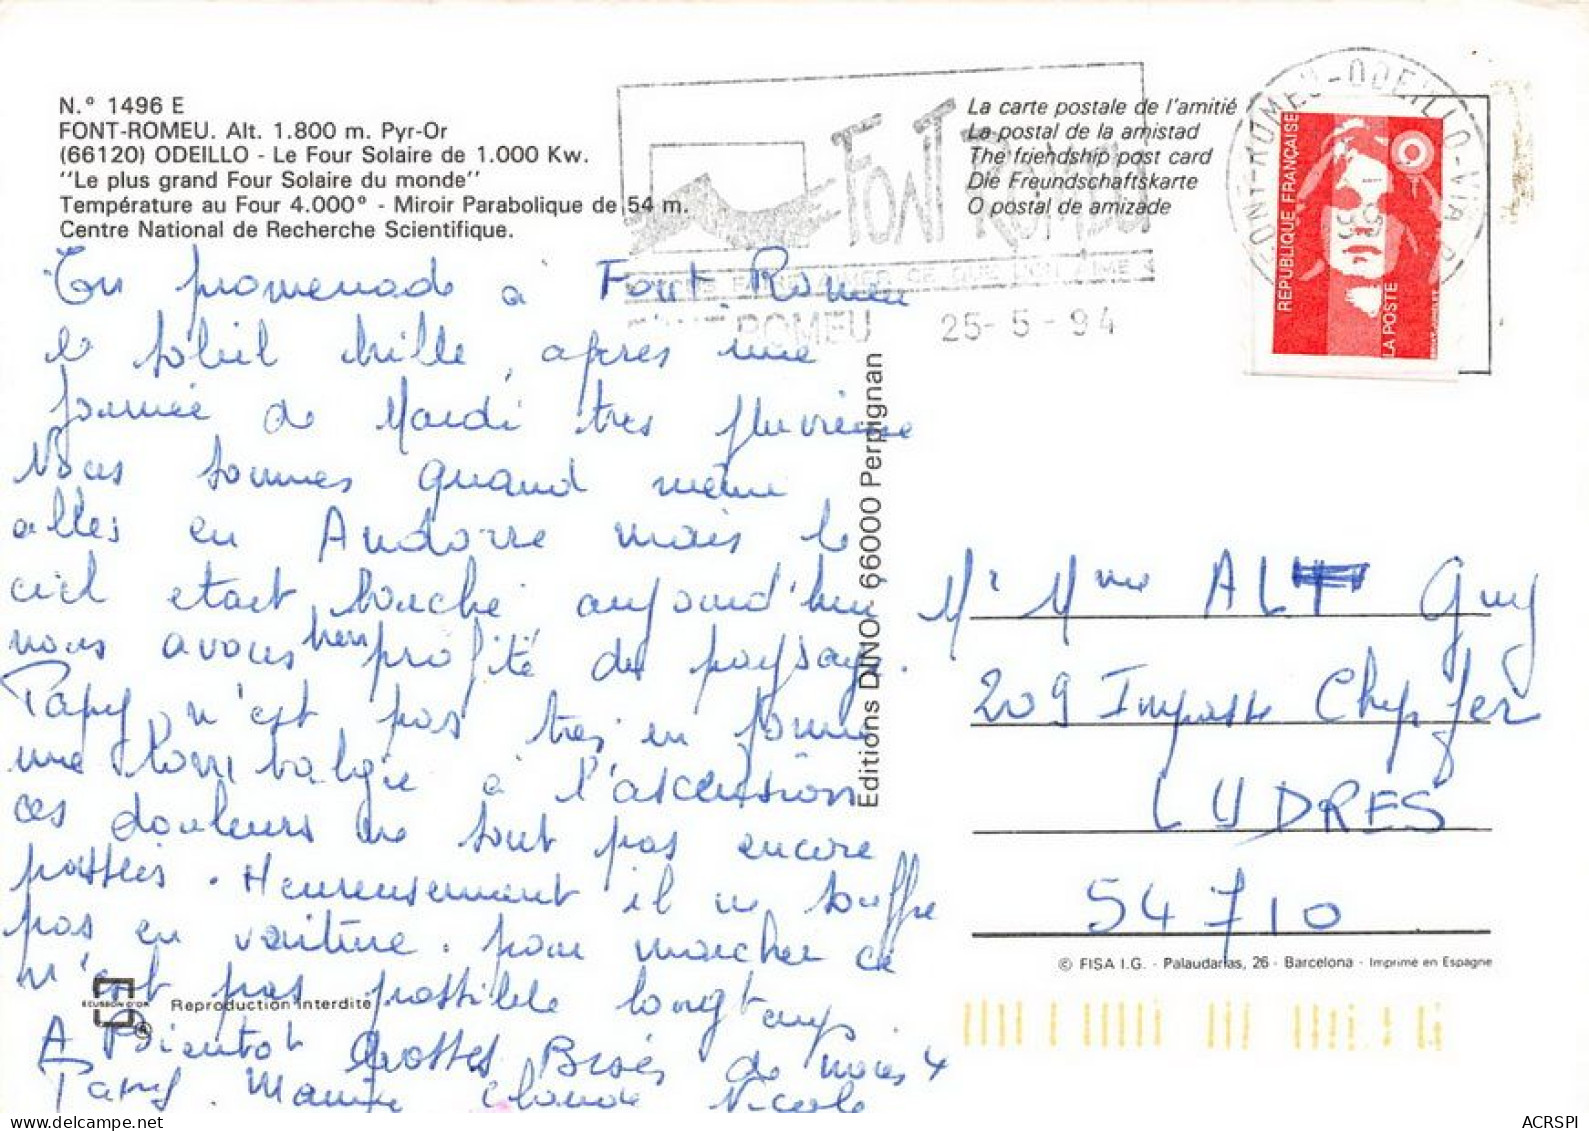 N.° 1496 E
FONT-ROMEU. Alt. 1.800 m. Pyr-Or
(66120) ODEILLO - Le Four Solaire de 1.000 Kw.
"Le plus grand Four Solaire du monde"
Température au Four 4.000° - Miroir Parabolique de 54 m.
Centre National de Recherche Scientifique.
FONT ROMEU
FAIRE AIMER CE QUE L'ON AIME
FONT ROMEU 25-5-94
La carte postale de l'amitié
La postal de la amistad
The friendship post card
Die Freundschaftskarte
O postal de amizade
FONT-ROMEU-ODEILLO-VIA
REPUBLIQUE FRANÇAISE
LA POSTE
En promenade à Font Romeu
le soleil brille, après une
journée de Mardi tres pluvieuse
Nous sommes quand même
alles en Andorre mais le
ciel etait bouché aujourd'hui
nous avons bien profité du paysage.
Papy n'est pas tres en forme
une lombalgie à l'ascension
ces douleurs ne sont pas encore
passées. Heureusement il ne souffre
pas en voiture. pour marcher ce
n'est pas possible longtemps.
A Bientot Grosses Bises de nous 4
Papy. Mamie Claude Nicole
Editions DINO - 66000 Perpignan
Mr Mme AL Guy
209 Impasse Chepfer
LUDRES
54710
© FISA I.G. - Palaudarias, 26 - Barcelona - Imprimé en Espagne
ECUSSON D'OR
Reproduction interdite
ACRSPI
www.delcampe.net